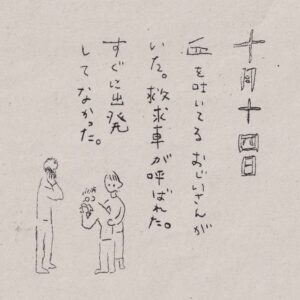 十月十四日
血を吐いてるおじいさんが
いた。救求車が呼ばれた。
すぐに出発
してなかった。